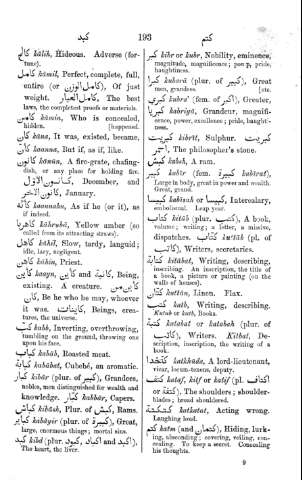 كبد 193 كتم
كالح kāliḥ, Hideous. Adverse (fortune).
كامل kāmil, Perfect, complete, full,
entire (or كامل الوزن). Of just
weight. كامل العيار, The best
laws, the completest proofs or materials.
كامن kāmin, Who is concealed,
hidden. [happened.
كان kāna, It was, existed, became,
كان kaanna, But if, as if, like.
كانون kānūn, A fire-grate, chafing-
dish, or any place for holding fire.
كانون الاول, December, and
كانون الاخر, January.
كانه kaannahu, As if he (or it), as
if indeed.
كاهربا kāhrubā, Yellow amber (so
called from its attracting straws).
كاهل kāhil, Slow, tardy, languid;
idle, lazy, negligent.
كاهن kāhin, Priest.
كاين kāayn, كاين and كاينة, Being,
existing. A creature. كاين من
كان, Be he who he may, whoever
it was. كاينات, Beings, creatures, the universe.
كب kabb, Inverting, overthrowing,
tumbling on the ground, throwing one
upon his face.
كباب kabāb, Roasted meat.
كبابة kabābat, Cubebè, an aromatic.
كبار kibār (plur. of كبير), Grandees,
nobles, men distinguished for wealth and
knowledge. كبار kabbār, Capers.
كباش kibāsh, Plur. of كبش, Rams.
كباير kabāyir (plur. of كبيرة), Great,
large, enormous things; mortal sins.
كبد kibd (plur. كبود, اكباد and اكبد),
The heart, the liver.
كبر kibr or kubr, Nobility, eminence,
magnitude, magnificence; pomp, pride,
haughtiness.
كبرا kubarā (plur. of كبير), Great
men, grandees. [etc.
كبري kubra' (fem. of اكبر), Greater,
كبريا kabriyā, Grandeur, magnificence, power, excellence; pride, haughtiness.
كبريت kibrīt, Sulphur. كبريت
احمر, The philosopher's stone.
كبش kabsh, A ram.
كبير kabīr (fem. كبيرة kabīrat),
Large in body, great in power and wealth.
Great, grand.
كبيسة kabīsah or كبيسا, Intercalary,
embolismal. Leap year.
كتاب kitāb (plur. كتب), A book,
volume; writing; a letter, a missive,
dispatches. كتاب kuttāb (pl. of
كاتب), Writers, secretaries.
كتابة kitābat, Writing, describing,
inscribing. An inscription, the title of
a book, a picture or painting (on the
walls of houses).
كتان kattān, Linen. Flax.
كتب katb, Writing, describing.
Kutub or kutb, Books.
كتبة katabat or katabah (plur. of
كاتب), Writers. Kitbat, Description, inscription, the writing of a
book.
كتخدا katkhudā, A lord-lieutenant,
vicar, locum-tenens, deputy.
كتف kataf, kitf or katif (pl. اكتاف
or كتفة), The shoulders; shoulder-
blades; broad shouldered.
كتكتة katkatat, Acting wrong.
Laughing loud.
كتم katm (and كتمان), Hiding, lurking, absconding; covering, veiling, concealing. To keep a secret. Concealing
his thoughts.
9